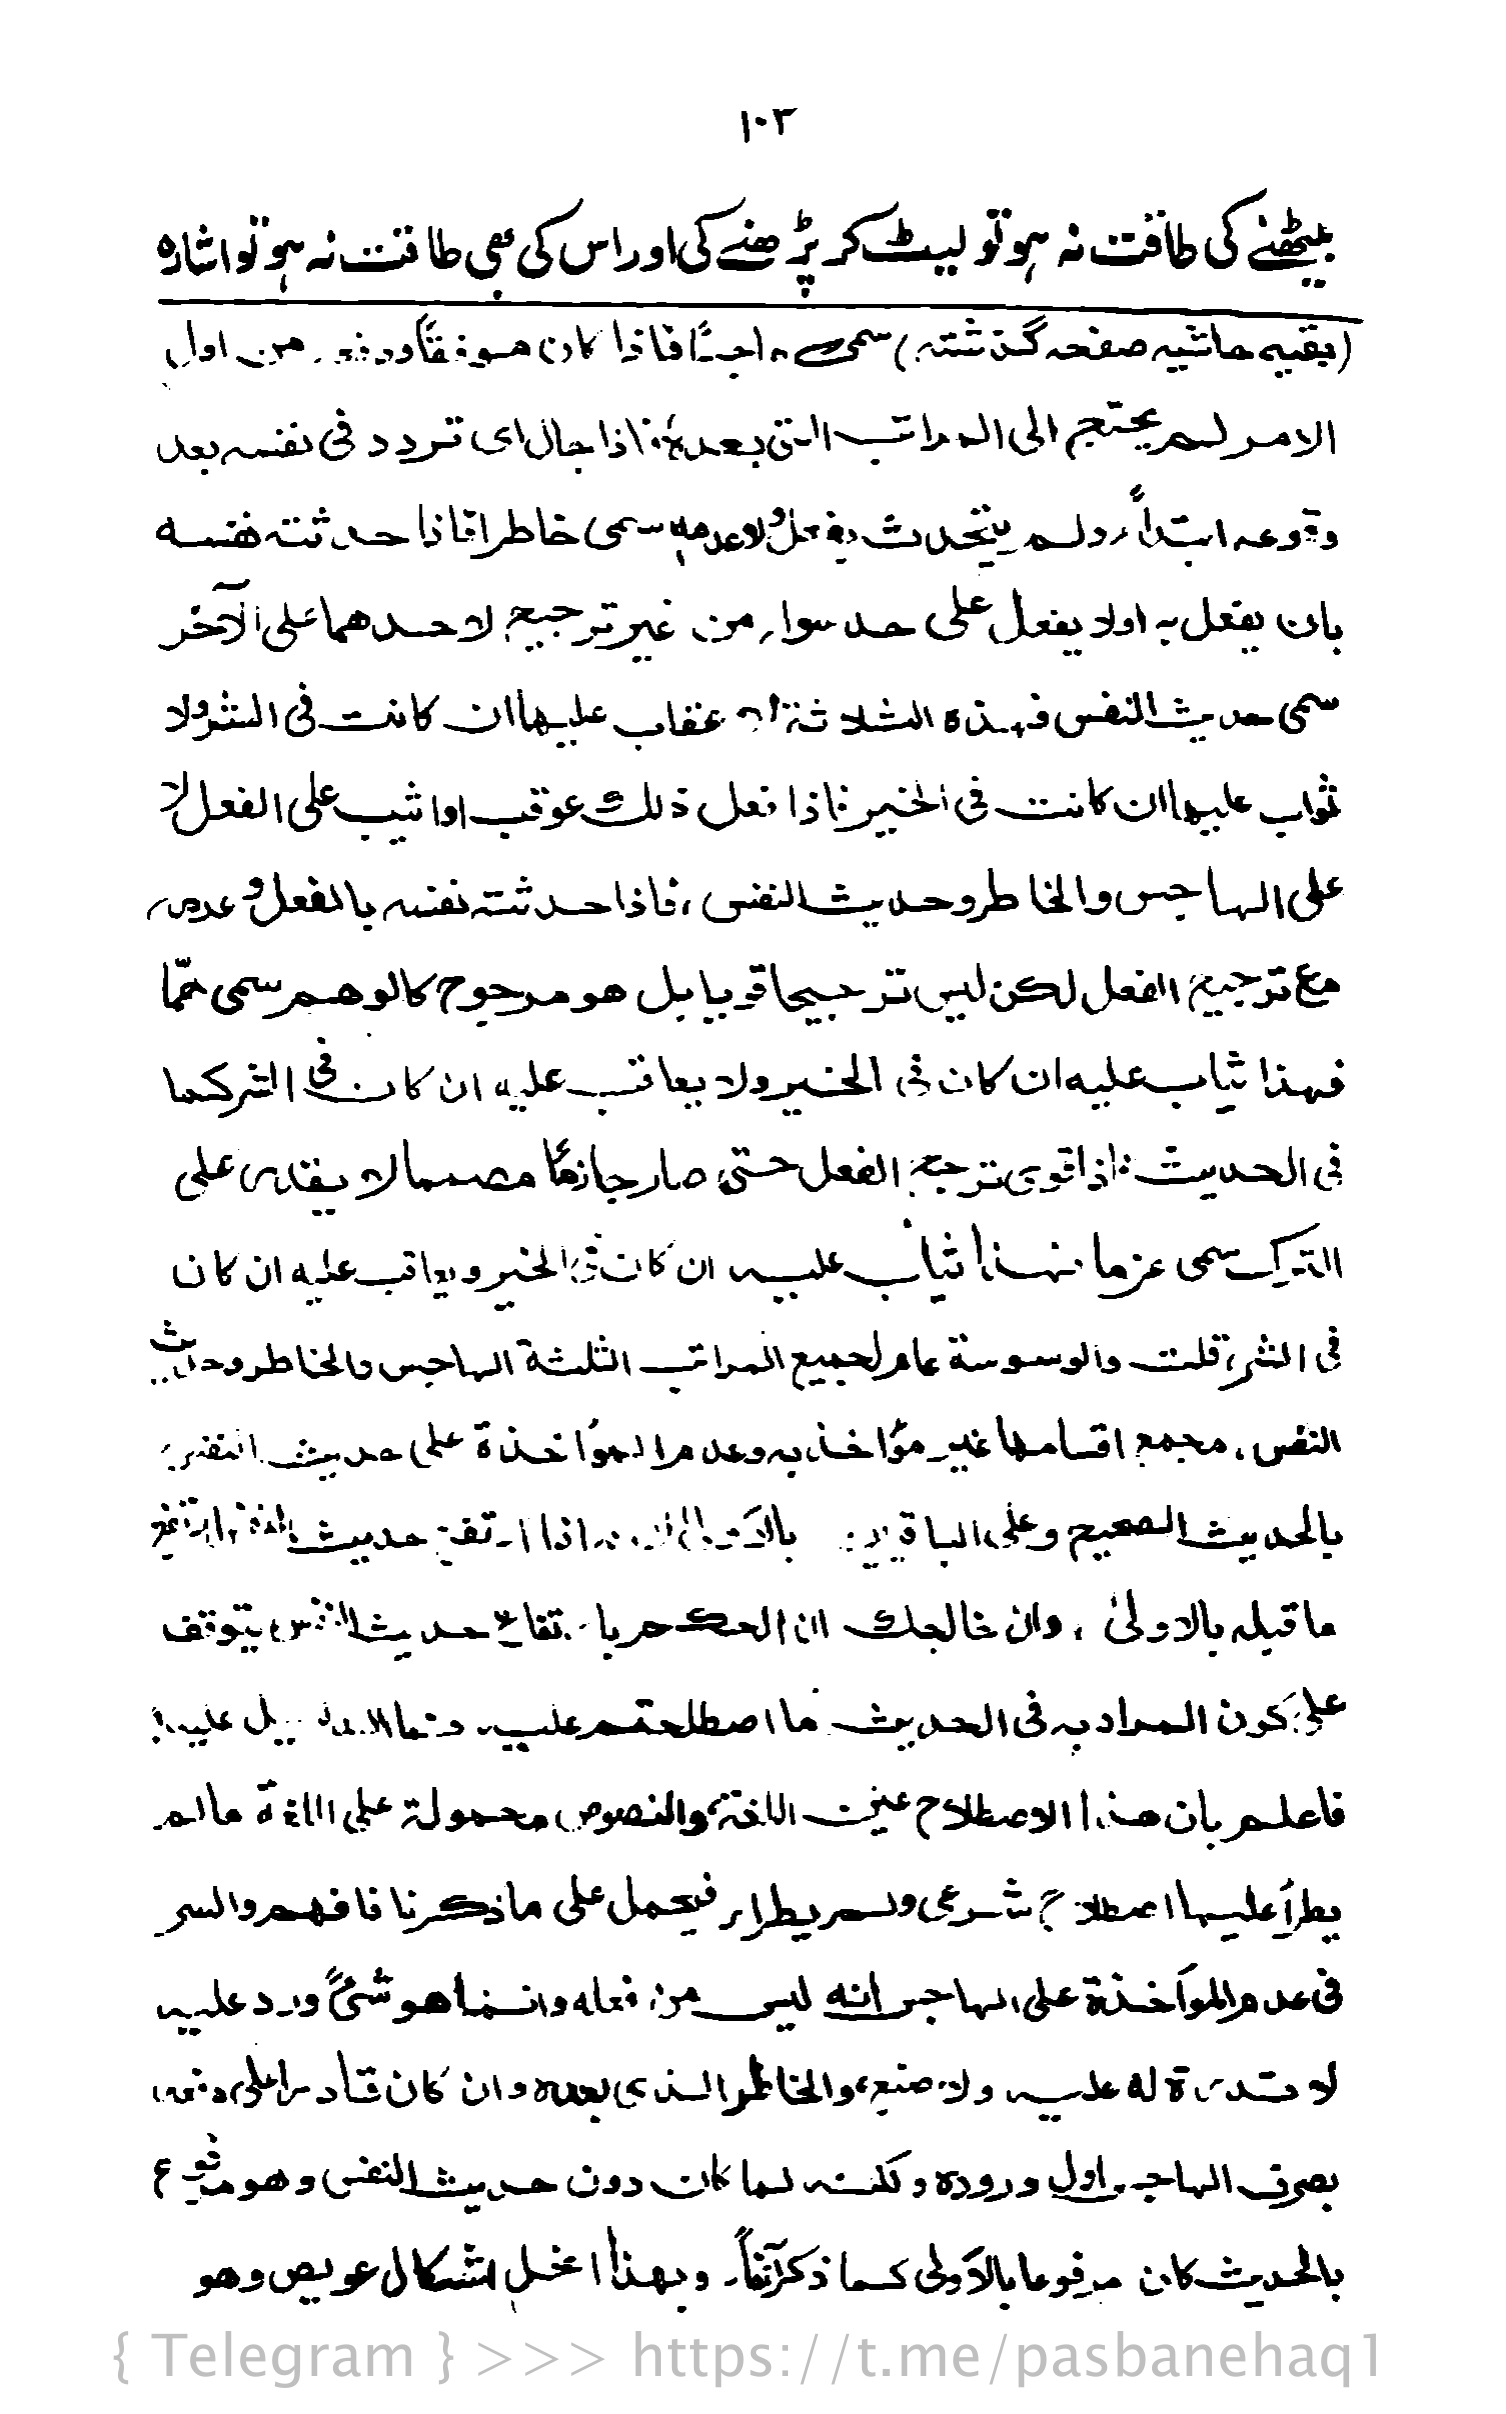 ۱۰۳
بیٹھنے کی طاقت نہ ہو تو لیٹ کر پڑھنے کی اور اس کی بھی طاقت نہ ہو تو اشارہ
(بقیہ حاشیہ صفحہ گذشتہ) سمی ھاجسًا فاذا کان موفقًا ودفعہ من اول
الامر لم یحتج الی المراتب التی بعدہٗ، فاذا جال ای تردد فی نفسہ بعد
وقوعہ ابتداءً ولم یتحدث بفعل ولا عدمہ سمی خاطرا فاذا حدثتہ نفسہ
بان یفعل بہ اولا یفعل علی حد سواء من غیر ترجیح لاحدهما علی الآخر
سمی حدیث النفس فهذہ الثلاثة لا عقاب علیها ان کانت فی الشر ولا
ثواب علیها ان کانت فی الخیر فاذا فعل ذلك عوقب او اثیب علی الفعل لا
علی الهاجس والخاطر وحدیث النفس، فاذا حدثتہ نفسہ بالفعل وعدمہ
مع ترجیح الفعل لکن لیس ترجیحا قویا بل هو مرجوح کالوهم سمی همًّا
فهذا یثاب علیہ ان کان فی الخیر ولا یعاقب علیہ ان کان فی الشر کما
فی الحدیث فاذا قوی ترجح الفعل حتی صار جازمًا مصمما لا یقدر علی
الترک سمی عزما فهذا یثاب علیہ ان کان فی الخیر ویعاقب علیہ ان کان
فی الشر، قلت والوسوسة عام لجمیع المراتب الثلثة الهاجس والخاطر وحدیث
النفس، مجمع اقسامها غیر مؤاخذ بہ وعدم المؤاخذة علی حدیث النفس
بالحدیث الصحیح وعلی الباقیین بالاولی لانہ اذا ارتفع حدیث النفس ارتفع
ما قبلہ بالاولیٰ ، وان خالجك ان الحکم بارتفاع حدیث النفس یتوقف
علی کون المراد بہ فی الحدیث ما اصطلحتم علیہ فما الدلیل علیہ؟
فاعلم بان هذا الاصطلاح عین اللغة، والنصوص محمولة علی اللغة مالم
یطرأ علیها اصطلاح شرعی ولم یطرأ، فیحمل علی ما ذکرنا فافهم والسر
فی عدم المؤاخذة علی الهاجس انه لیس من فعله وانما هو شئ ورد علیہ
لا قدرة له علیہ ولا صنع، والخاطر الذی بعدہ وان کان قادرا علی دفعہ
بصرف الهاجس اول ورودہ ولکنہ لما کان دون حدیث النفس وهو مرفوع
بالحدیث کان مرفوعا بالاولی کما ذکر آنفًا۔ وبهذا انحل اشکال عویص وهو
{ Telegram } >>> https://t.me/pasbanehaq1